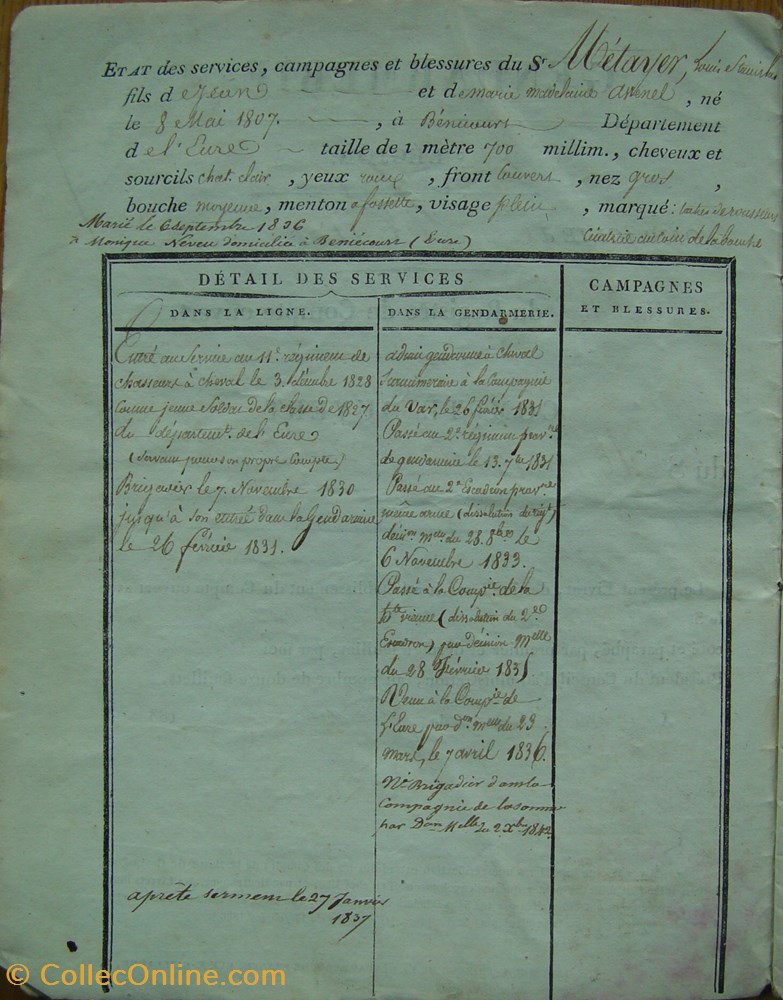 ETAT des services, campagnes et blessures du Sr Métayer, Louis
fils de Jean et de marie madelaine, né
le 8 Mai 1807. , à Bénicourt Département
de l'Eure taille de 1 mètre 700 millim., cheveux et
sourcils chat. clair, yeux roux, front couvert, nez gros,
bouche moyenne, menton à fossette, visage plein, marqué: taches de rousseur
Marié le 6 septembre 1836
à Monique Neveu domiciliée à Beniécourt (Eure)
cicatrice au coin de la bouche
DÉTAIL DES SERVICES
CAMPAGNES
ET BLESSURES.
DANS LA LIGNE.
DANS LA GENDARMERIE.
Entré au Service au 11e régiment de
chasseurs à cheval le 3 décembre 1828
comme jeune Soldat de la classe de 1827
du départemt. de l'Eure
(Servant pour son propre Compte)
Brigadier le 7 Novembre 1830
jusqu'à son entrée dans la Gendarmerie
le 26 février 1831.
admis gendarme à cheval
surnuméraire à la Compagnie
du Var, le 26 février 1831
Passé au 2e régiment prov.
de gendarmerie le 13. 7bre 1831
Passé au 2e Escadron prov.re
même arme (dissolution du régt)
du 28. 8bre le
6 Novembre 1833.
Passé à la Compie. de la
hte vienne (dissolution du 2e
Escadron) par décision Melle
du 28 Février 1835
Venu à la Compie de
l'Eure par don melle du 23
mars, le 7 avril 1836.
Né Brigadier dans la
Compagnie de la somme
par Don Melle du 2 Xbre 1842.
a prêté serment le 27 Janvier
1837
© CollecOnline.com